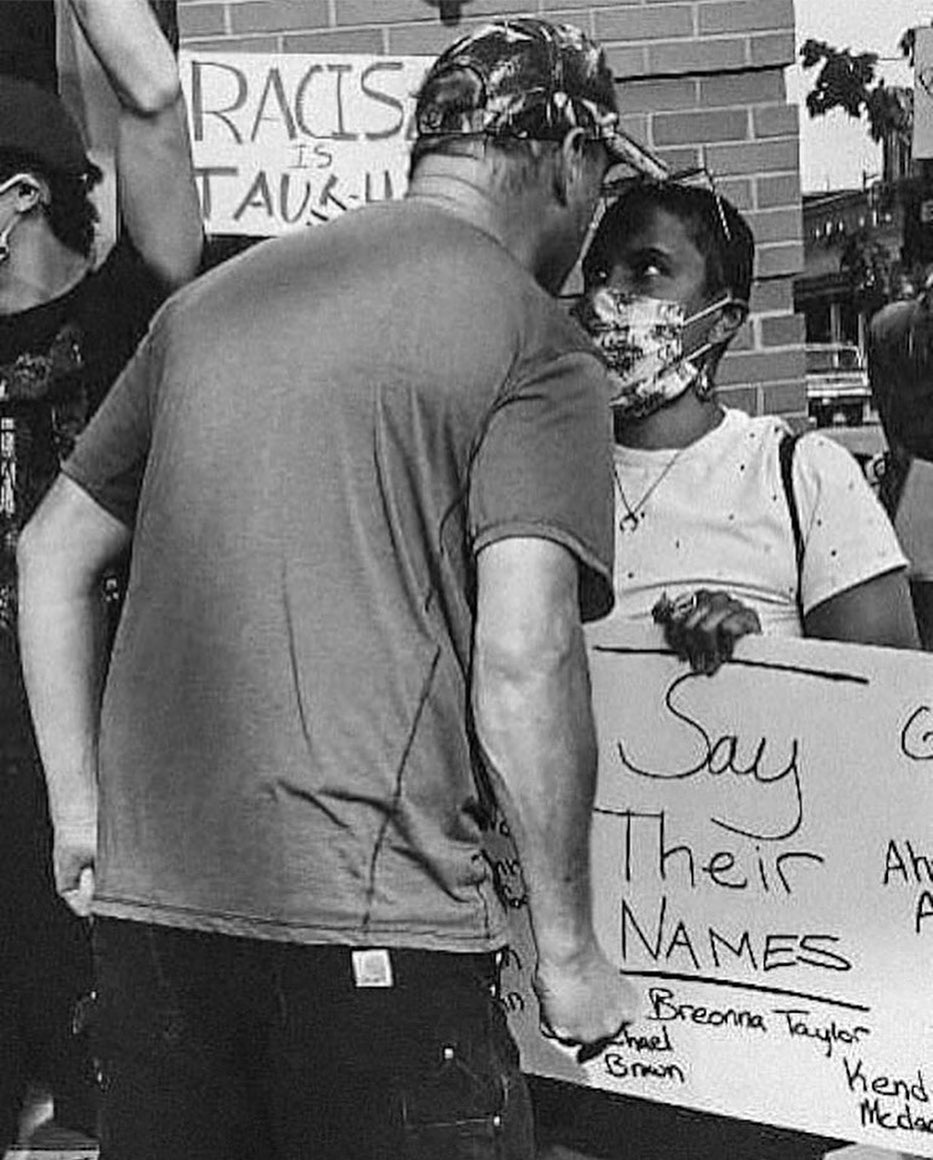 RACIS
IS
TAUGH
Say
Their
NAMES
Breonna Taylor
chael
Brown
Kend
Mcda
G
Ah
A